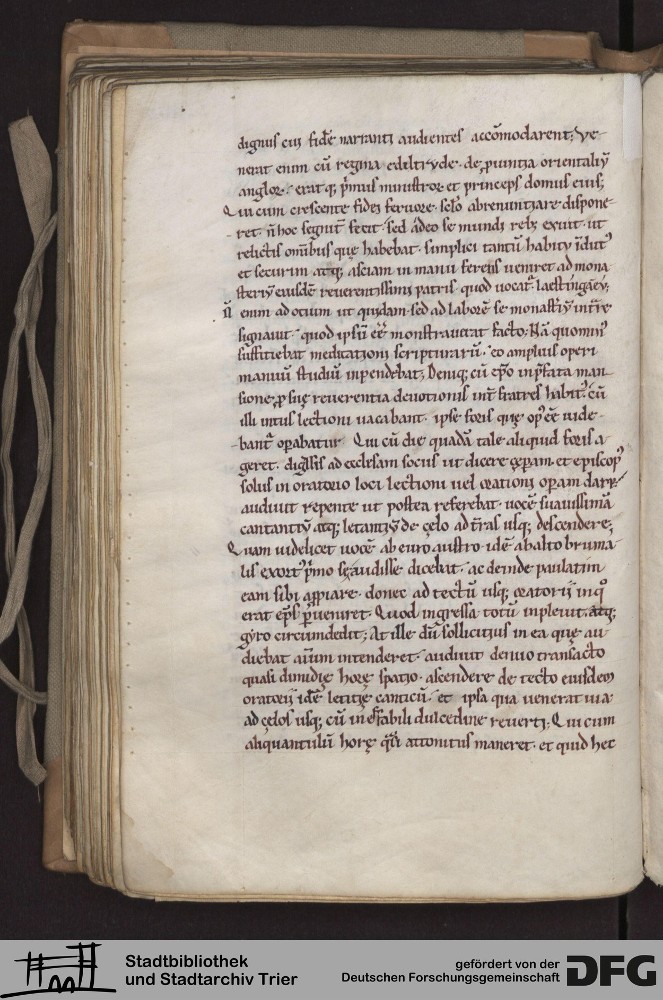 dignus cui fidē narranti audientes accōmodarent; Ve-
nerat enim cū regina edeltryde de ꝓuintia orientaliū
anglor; eratq; p̄mus ministror et princeps domus eius;
Qui cum crescente fidei feruore sc̄lo abrenuntiare dispone-
ret n̄ hoc segnit̄ fecit sed adeo se mundi reb; exuit ut
relictis omībus que habebat simplici tantū habitu īdut᷒
et securim atq; asciam in manu ferens ueniret ad mona
steriū eiusdē reuerentissimi patris quod uocat᷒ laestingaeu;
n̄ enim ad otium ut quidam sed ad laborē se monastiū intre
signauit quod ipsū ēē monstrauerat facto; Nā quomin᷒
sufficiebat meditationi scripturarū eo amplius operi
manuū studiū inpendebat; Deniq; cū ep̄o in p̄fata man
sione ꝓ sue reuerentia deuotionis int̄ fratres habit᷒ cū
illi intus lectioni uacabant ipse foris que op᷒ eē uide-
bant᷒ opabatur Qui cū die quadā tale aliquid foris a-
geret digssis ad ecclesam sociis ut dicere ceperam et episcop᷒
solus in oratorio loci lectioni uel orationi operam daret
audiuit repente ut postea referebat uocē suauissimā
cantantiū atq; letantiū de celo ad t̄ras usq; descendere;
Quam uidelicet uocē ab euro austro idē ab alto bruma-
lis exort᷒ p̄mo se audisse dicebat ac deinde paulatim
eam sibi appiare donec ad tectū usq; oratorii in quo
erat ep̄s ꝑueniret Quod ingressa totū inpleuit atq;
gyro circumdedit; At ille dū sollicitus in ea que au
diebat aīum intenderet audiuit denuo transacto
quasi dimidie hore spatio ascendere de tecto eiusdem
oratorii idē letitie canticū et ipsa qua uenerat uia
ad celos usq; cū ineffabili dulcedine reuerti; Qui cum
aliquantulū hore q̄si attonitus maneret et quid hec
Stadtbibliothek
und Stadtarchiv Trier
gefördert von der
Deutschen Forschungsgemeinschaft
DFG